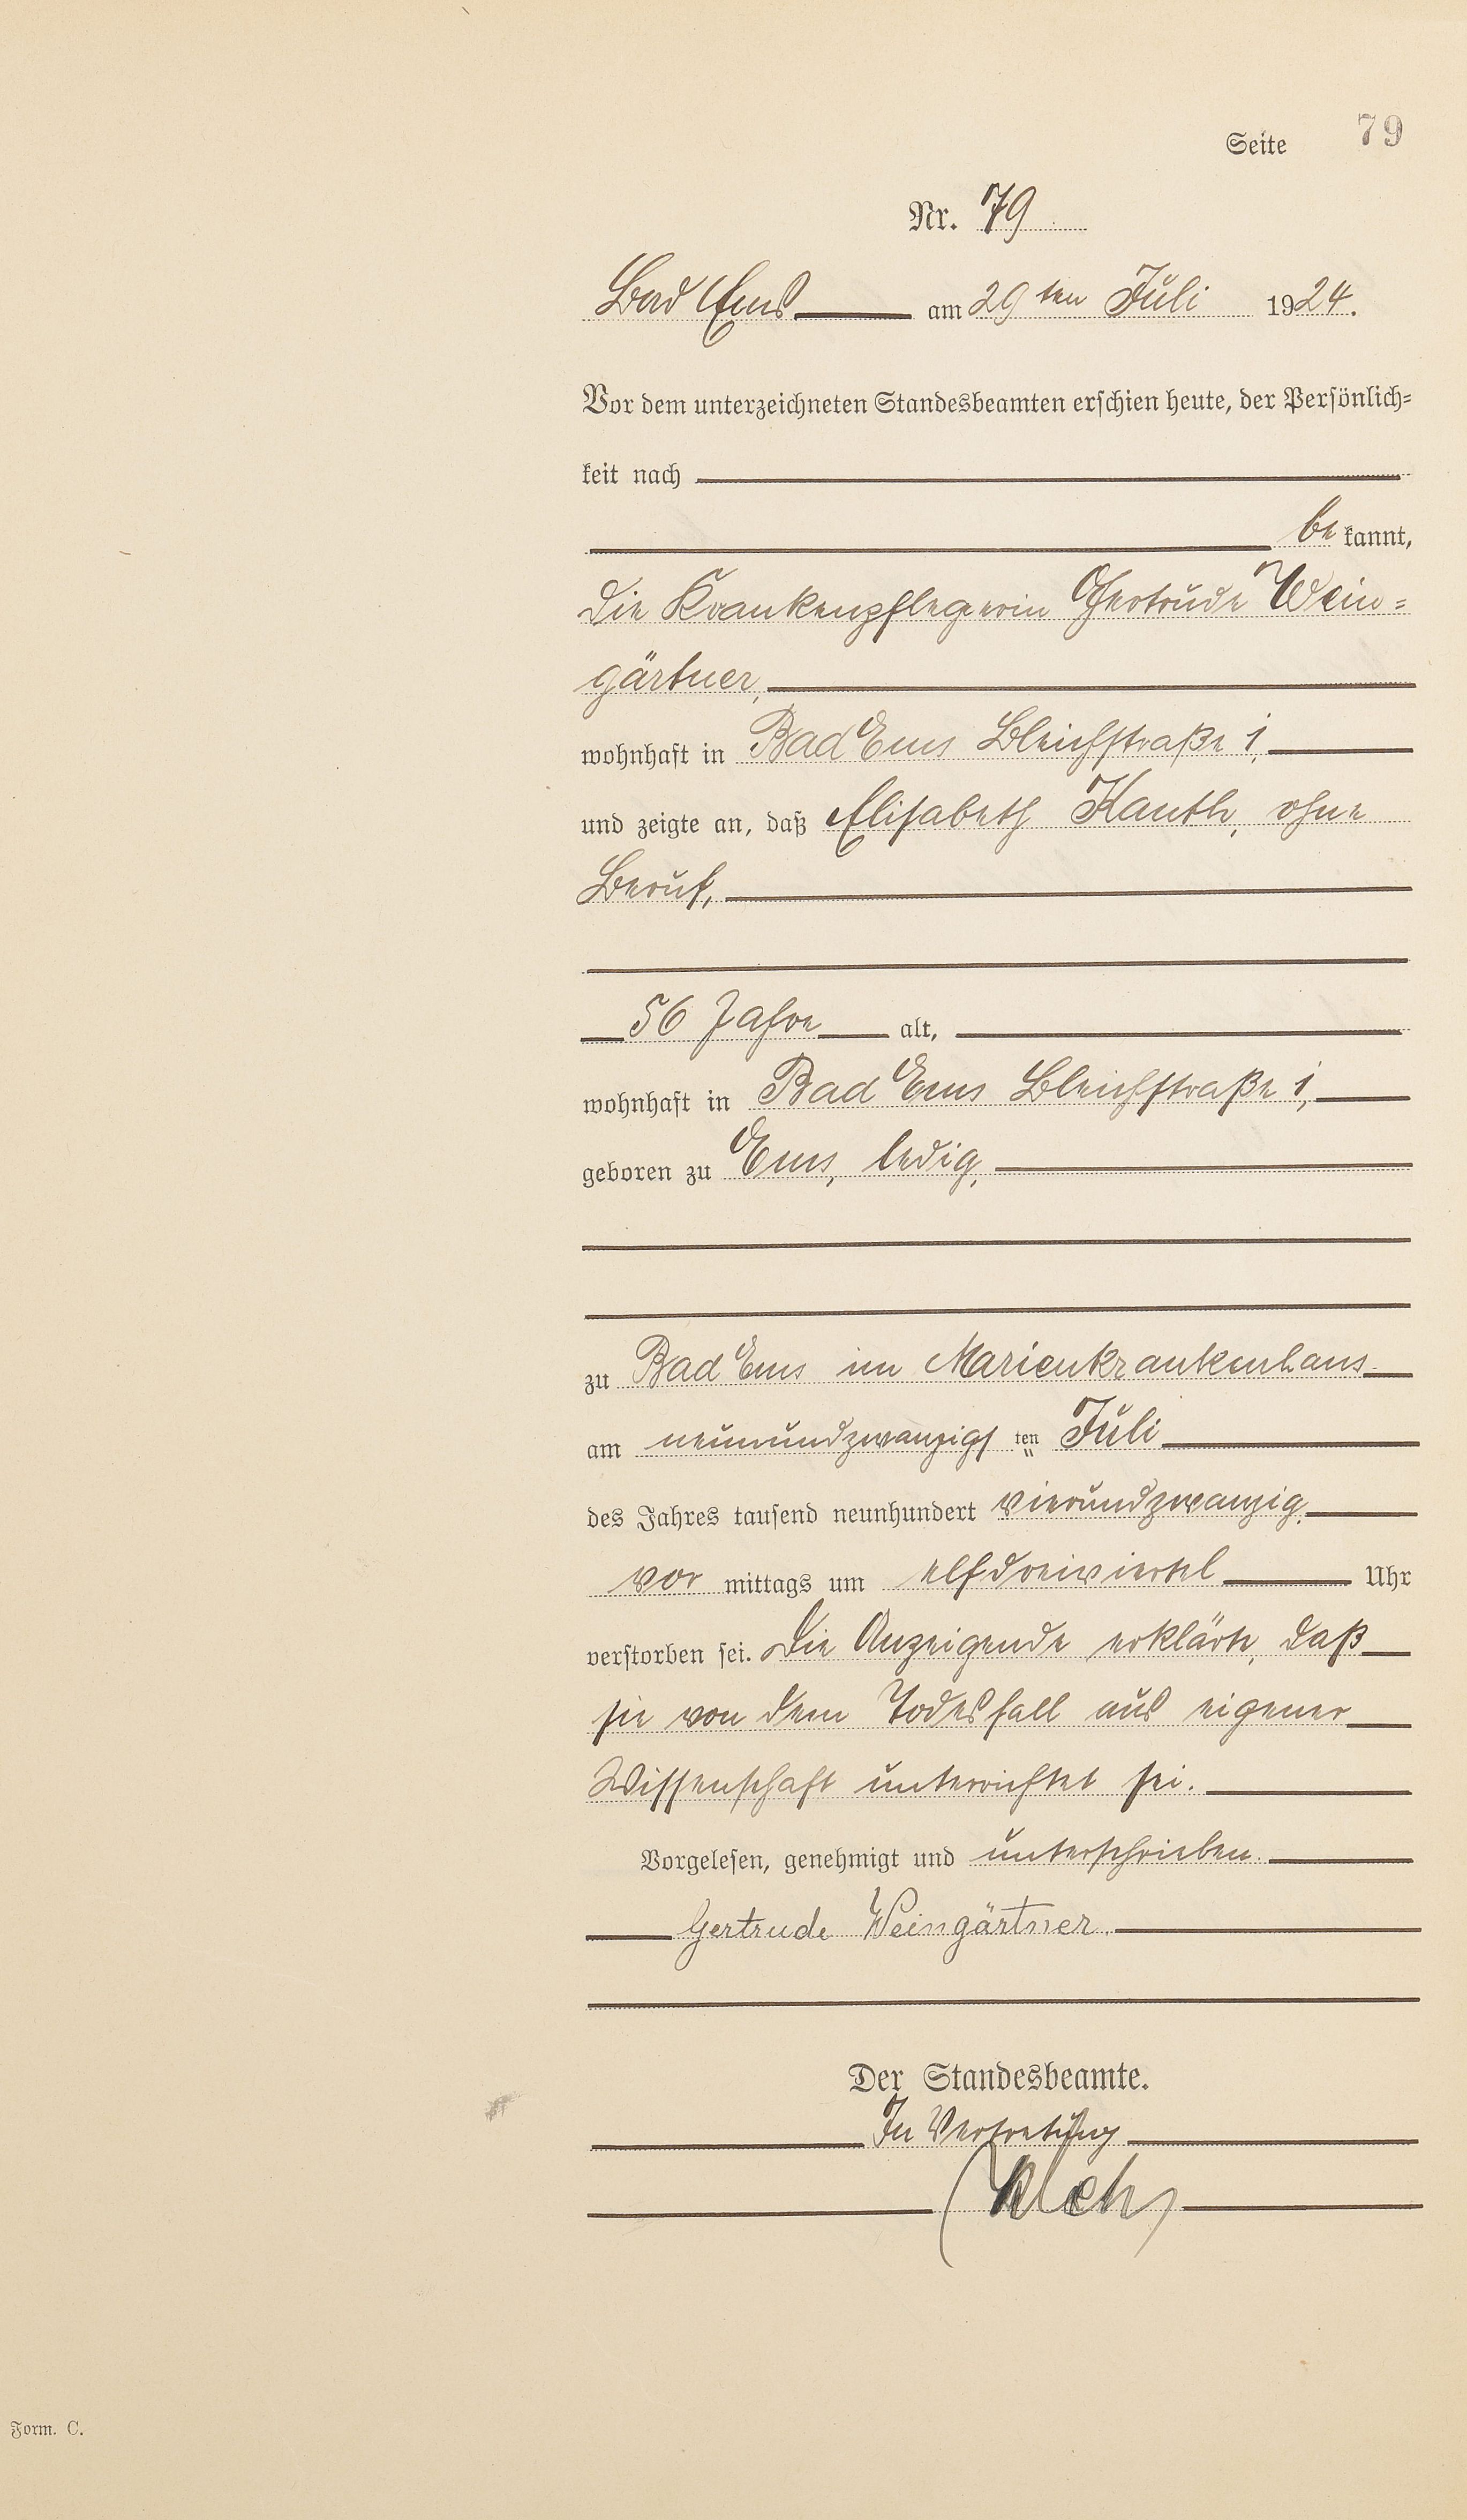 Seite 79
Nr. 79
Bad Ems am 29ten Juli 1924.
Vor dem unterzeichneten Standesbeamten erschien heute, der Persönlich=
keit nach
be kannt,
die Krankenpflegerin Gertrude Wein=
gärtner,
wohnhaft in Bad Ems Bleichstraße 1,
und zeigte an, daß Elisabeth Kauth, ohne
Beruf,
56 Jahre alt,
wohnhaft in Bad Ems Bleichstraße 1,
geboren zu Ems, ledig,
zu Bad Ems im Marienkrankenhaus
am neunundzwanzigs ten Juli
des Jahres tausend neunhundert vierundzwanzig,
vor mittags um elfdreiviertel Uhr
verstorben sei. Die Anzeigende erklärte, daß
sie von dem Todesfall aus eigener
Wissenschaft unterrichtet sei.
Vorgelesen, genehmigt und unterschrieben.
Gertrude Weingärtner.
Der Standesbeamte.
In Vertretung
Form. C.